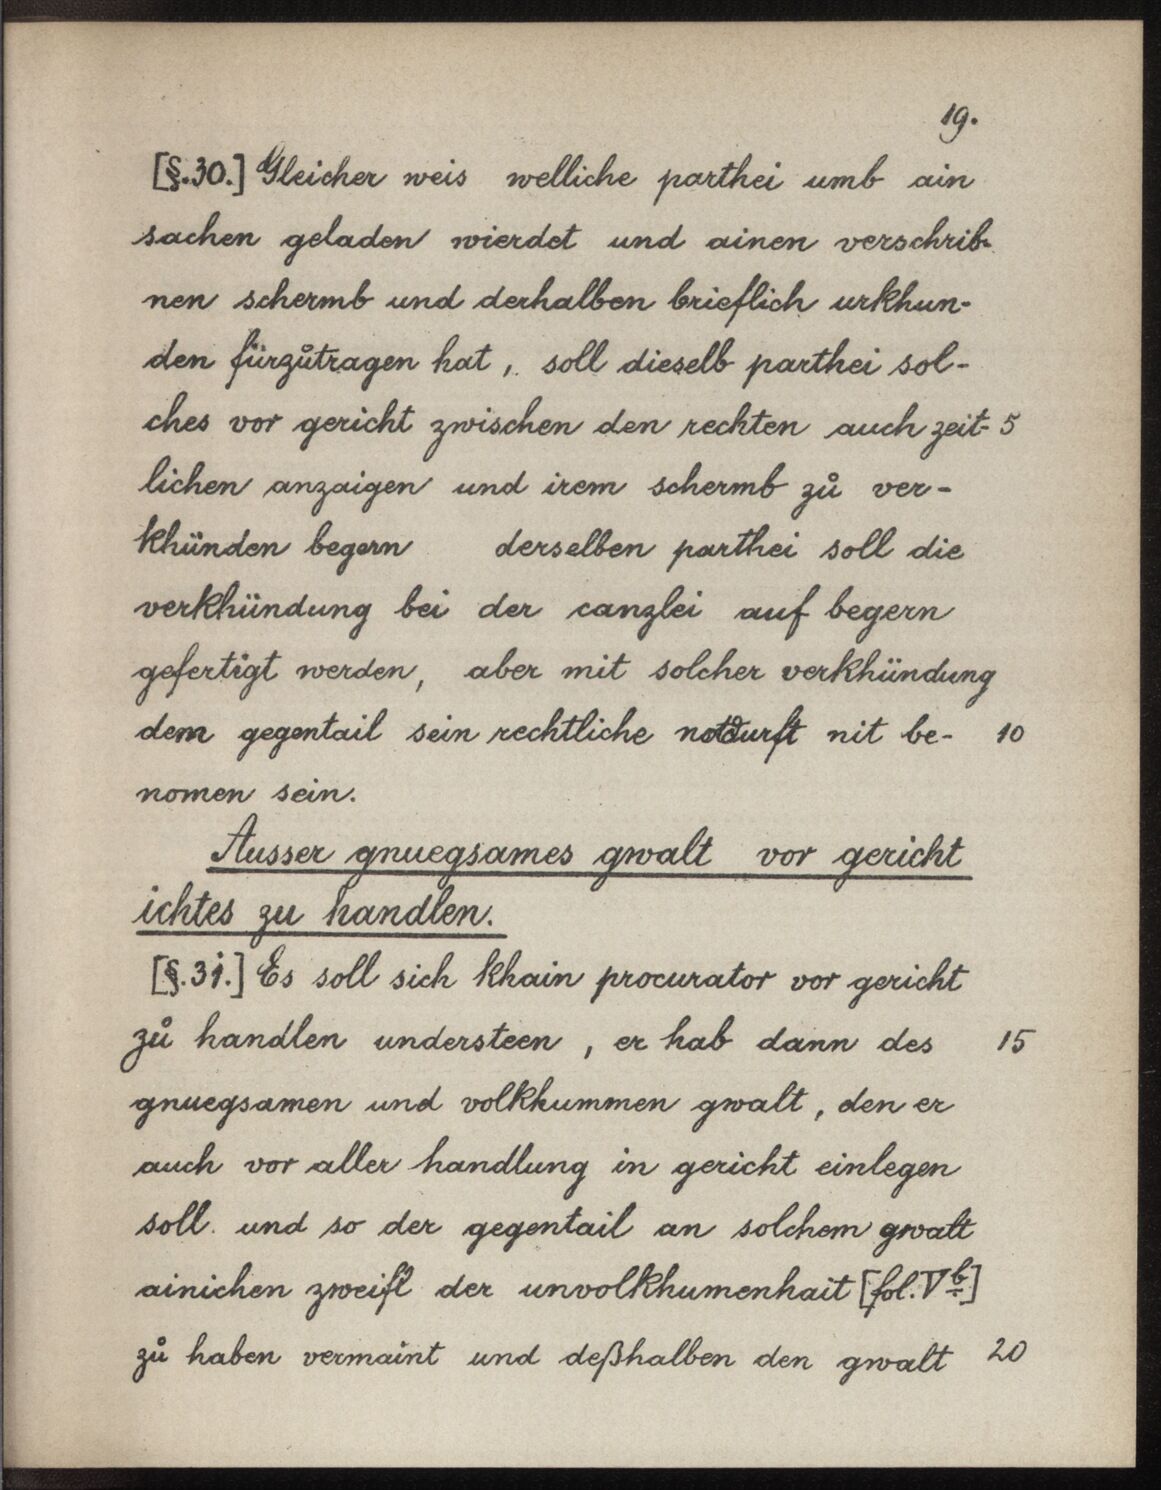 19.
[§.30.] Gleicher weis welliche parthei umb ain
sachen geladen wierdet und ainen verschrib-
nen schermb und derhalben brieflich urkhun-
den fürzůtragen hat, soll dieselb parthei sol-
ches vor gericht zwischen den rechten auch zeit- 5
lichen anzaigen und irem schermb zů ver-
khünden begern derselben parthei soll die
verkhündung bei der canzlei auf begern
gefertigt werden, aber mit solcher verkhündung
dem gegentail sein rechtliche notdurft nit be- 10
nomen sein.
Ausser gnuegsames gwalt vor gericht
ichtes zu handlen.
[§.31.] Es soll sich khain procurator vor gericht
zů handlen understeen, er hab dann des 15
gnuegsamen und volkhummen gwalt, den er
auch vor aller handlung in gericht einlegen
soll. und so der gegentail an solchem gwalt
ainichen zweifl der unvolkhumenhait [fol. Vb]
zů haben vermaint und deßhalben den gwalt 20